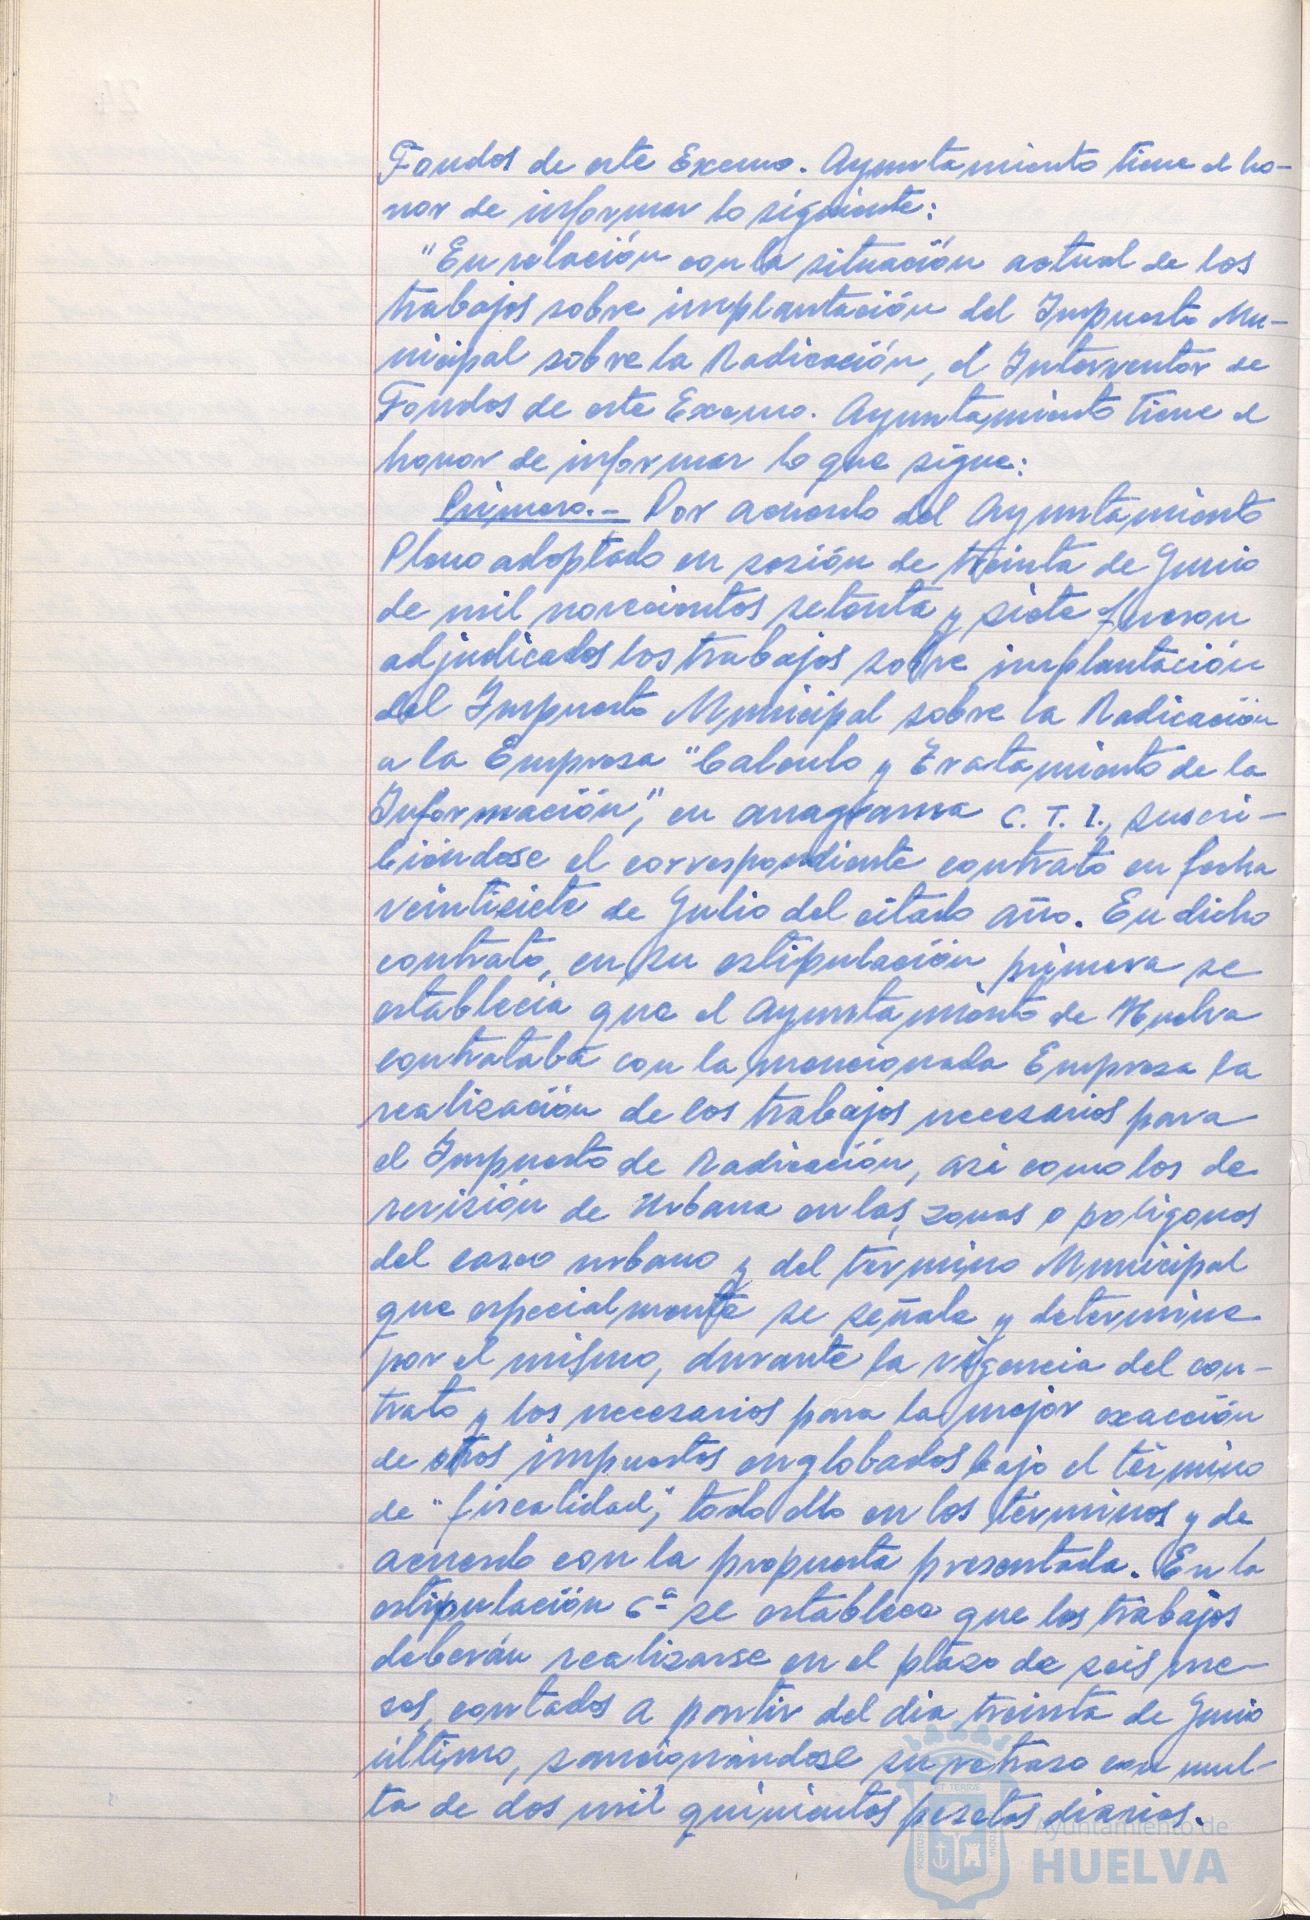 Fondos de este Excmo. Ayuntamiento tiene el ho-
nor de informar lo siguiente:
"En relación con la situación actual de los
trabajos sobre implantación del Impuesto Mu-
nicipal sobre la Radicación, el Interventor de
Fondos de este Excmo. Ayuntamiento tiene el
honor de informar lo que sigue:
Primero.- Por acuerdo del Ayuntamiento
Pleno adoptado en sesión de treinta de Junio
de mil novecientos setenta y siete fueron
adjudicados los trabajos sobre implantación
del Impuesto Municipal sobre la Radicación
a la Empresa "Calculo y Tratamiento de la
Información", en anagrama C.T.I., suscri-
biéndose el correspondiente contrato en fecha
veintisiete de Julio del citado año. En dicho
contrato, en su estipulación primera se
establecía que el Ayuntamiento de Huelva
contrataba con la mencionada Empresa la
realización de los trabajos necesarios para
el Impuesto de Radicación, asi como los de
revisión de Urbana en las zonas o poligonos
del casco urbano y del término Municipal
que especialmente se señale y determine
por el mismo, durante la vigencia del con-
trato y los necesarios para la mejor exacción
de otros impuestos englobados bajo el término
de "fiscalidad", todo ello en los términos y de
acuerdo con la propuesta presentada. En la
estipulación 6ª se establece que los trabajos
deberán realizarse en el plazo de seis me-
ses, contados a partir del dia treinta de Junio
último, sancionándose su retraso con mul-
ta de dos mil quinientas pesetas diarias.
Ayuntamiento de
HUELVA